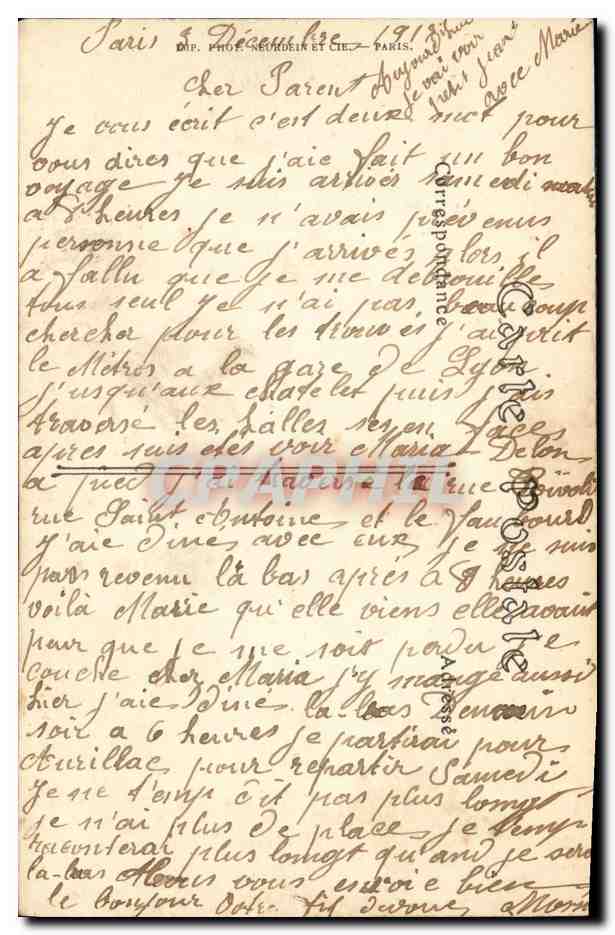 Paris 3 Décembre 1913
IMP. PHOT. NEURDEIN ET CIE. — PARIS.
Aujourd'hui
je vai voir
petit Jean
avec Marie
Cher Parent
Je vous écrit c'est deux mot pour
vous dires que j'aie fait un bon
voyage Je suis arrives samedi
a 8 heures je n'avais prévenus
personne que j'arrives alors il
a fallu que je me debrouilles
tous seul Je n'ai pas beaucoup
chercher pour les trouves j'ai prit
le Métros a la gare de Lyon
J'usqu'aux chatelet puis j'ais
traversé les halles ses en face
apres suis voir Maria Delon
a pied j'ai traverse la rue Rivoli
rue Saint Antoine et le faubourd
J'aie dines avec eux je ne suis
pas revenu la bas aprés a 8 heures
voilà Marie qu'elle viens elle avait
peur que je me soit perdu Je
couche cher Maria j'y mange aussi
hier j'aie diné la-bas Demain
soir a 6 heures je partirai pour
Aurillac pour repartir Samedi
Je ne t'enp dit pas plus longt
je n'ai plus de place je t'enp
raconterai plus longt quand je sera
la-bas vous envoie bien
le bonjour Votre fil devoue
Correspondance
Carte Postale
Adresse
CPAPHIL